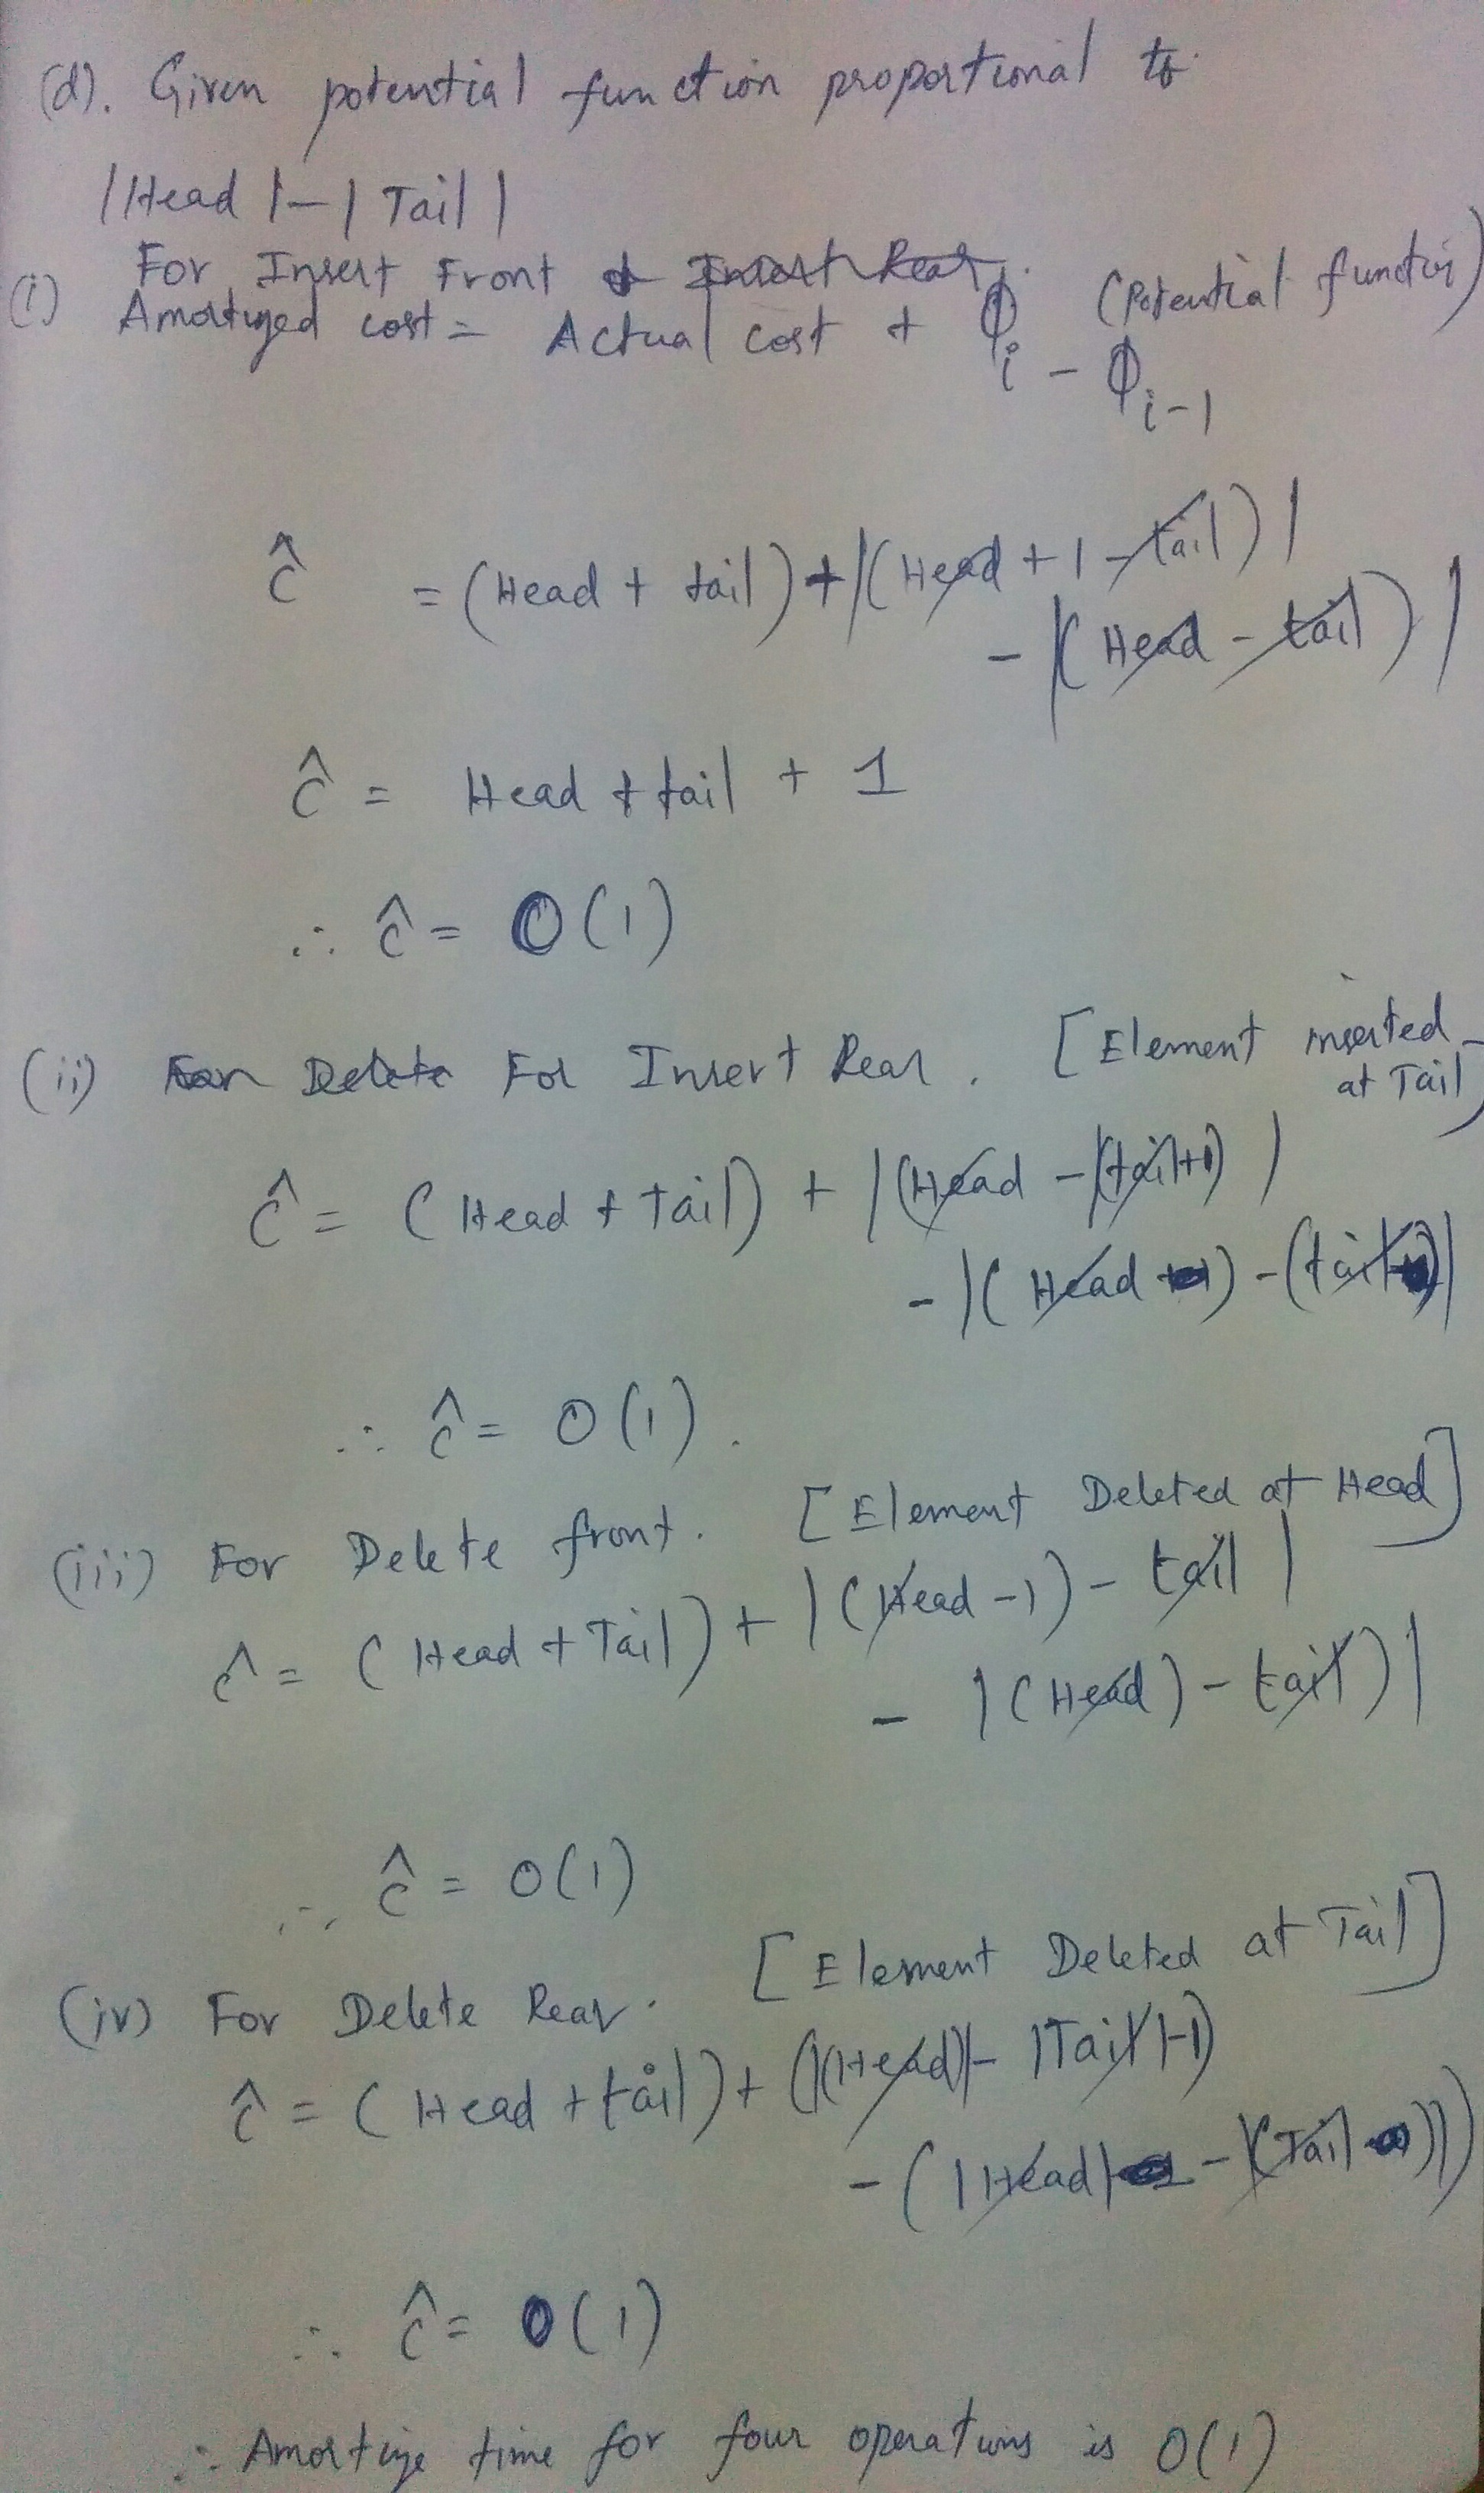 (d). Given potential function proportional to
|Head|-|Tail|
(i) For Insert Front & Insert Rear.
Amortized cost = Actual cost + ϕi - ϕi-1 (Potential function)
ĉ = (Head + tail) + |(Head + 1 - tail)|
- |(Head - tail)|
ĉ = Head + tail + 1
∴ ĉ = O(1)
(ii) For Delete For Insert Rear. [Element inserted
at Tail]
ĉ = (Head + Tail) + |(Head - (tail+1)|
- |(Head) - (tail)|
∴ ĉ = O(1).
(iii) For Delete front. [Element Deleted at Head]
ĉ = (Head + Tail) + |(Head -1) - tail|
- |(Head) - tail)|
∴ ĉ = O(1)
(iv) For Delete Rear. [Element Deleted at Tail]
ĉ = (Head + tail) + (|(Head)|- |Tail|-1)
- (|Head| - |(Tail)|)
∴ ĉ = O(1)
∴ Amortize time for four operations is O(1)